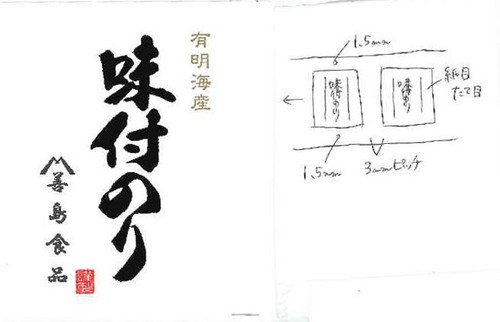 有明海産
味付のり
善島食品
謹製
1.5mm
味付のり
味付のり
紙目
たて目
1.5mm
3mmピッチ